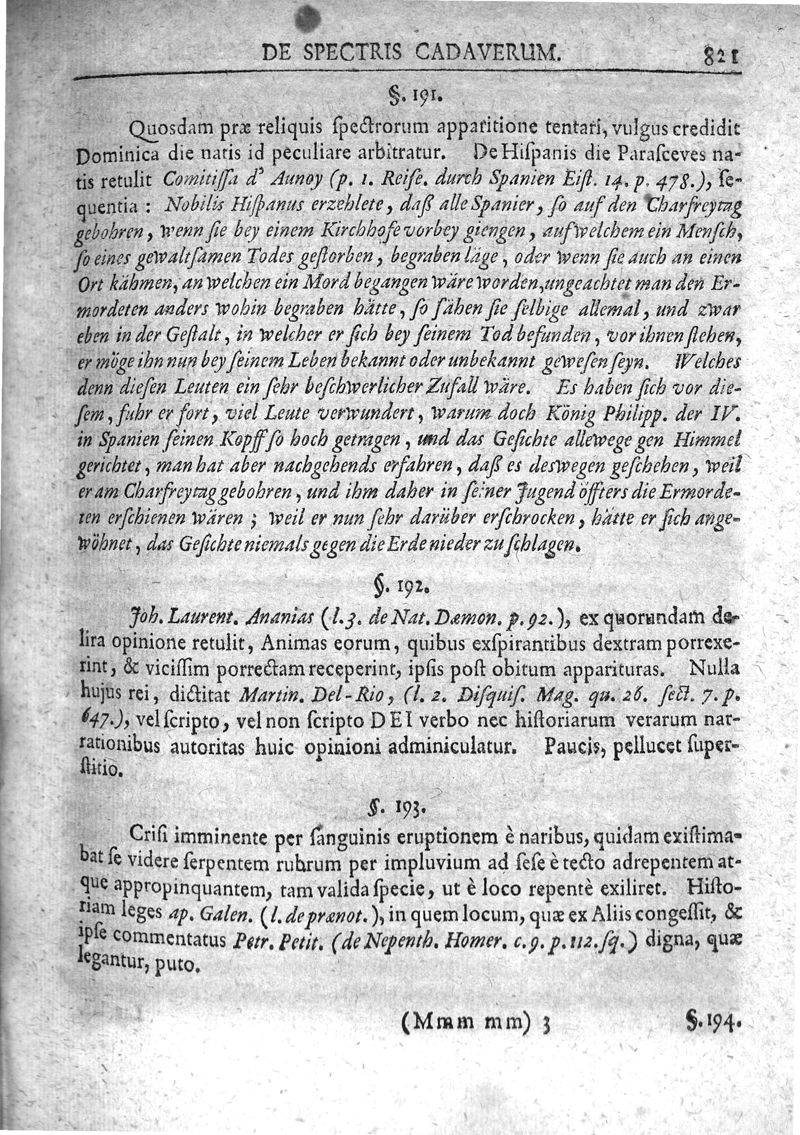 DE SPECTRIS CADAVERUM. 821
§. 191.
Quosdam præ reliquis ſpectrorum apparitione tentari, vulgus credidit
Dominica die natis id peculiare arbitratur. De Hiſpanis die Paraſceves na-
tis retulit Comitiſſa d' Aunoy (p. 1. Reiſe. durch Spanien Eiſt. 14. p. 478.), ſe-
quentia : Nobilis Hiſpanus erzehlete, daß alle Spanier, ſo auf den Charfreytag
gebohren, wenn ſie bey einem Kirchhofe vorbey giengen, auf welchem ein Menſch,
ſo eines gewaltſamen Todes geſtorben, begraben läge, oder wenn ſie auch an einen
Ort kähmen, an welchen ein Mord begangen wäre worden, ungeachtet man den Er-
mordeten anders wohin begraben hätte, ſo ſähen ſie ſelbige allemal, und zwar
eben in der Geſtalt, in welcher er ſich bey ſeinem Tod befunden, vor ihnen ſtehen,
er möge ihn nun bey ſeinem Leben bekannt oder unbekannt geweſen ſeyn. Welches
denn dieſen Leuten ein ſehr beſchwerlicher Zufall wäre. Es haben ſich vor die-
ſem, fuhr er fort, viel Leute verwundert, warum doch König Philipp. der IV.
in Spanien ſeinen Kopff ſo hoch getragen, und das Geſichte allewege gen Himmel
gerichtet, man hat aber nachgehends erfahren, daß es deswegen geſchehen, weil
er am Charfreytag gebohren, und ihm daher in ſeiner Jugend öffters die Ermorde-
ten erſchienen wären ; weil er nun ſehr darüber erſchrocken, hätte er ſich ange-
wöhnet, das Geſichte niemals gegen die Erde nieder zu ſchlagen.
§. 192.
Joh. Laurent. Ananias (l. 3. de Nat. Dæmon. p. 92.), ex quorundam de-
lira opinione retulit, Animas eorum, quibus exſpirantibus dextram porrexe-
rint, & viciſſim porrectam receperint, ipſis poſt obitum apparituras. Nulla
hujus rei, dictitat Martin. Del-Rio, (l. 2. Diſquiſ. Mag. qu. 26. ſect. 7. p.
647.), vel ſcripto, vel non ſcripto DEI verbo nec hiſtoriarum verarum nar-
rationibus autoritas huic opinioni adminiculatur. Paucis, pellucet ſuper-
ſtitio.
§. 193.
Criſi imminente per ſanguinis eruptionem è naribus, quidam exiſtima-
bat ſe videre ſerpentem rubrum per impluvium ad ſeſe è tecto adrepentem at-
que appropinquantem, tam valida ſpecie, ut è loco repentè exiliret. Hiſto-
riam leges ap. Galen. (l. de prænot.), in quem locum, quæ ex Aliis congeſſit, &
ipſe commentatus Petr. Petit. (de Nepenth. Homer. c. 9. p. 112. ſq.) digna, quæ
legantur, puto.
(Mmm mm) 3 §. 194.